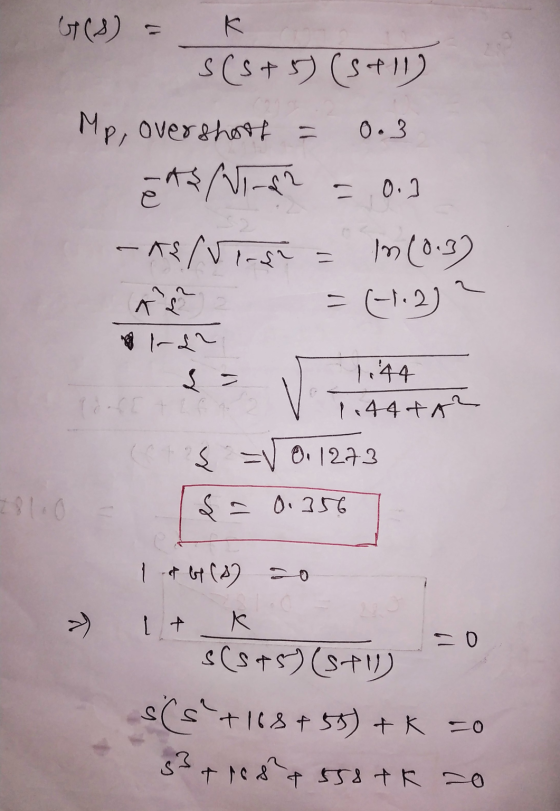 G(s) = K / s(s+5)(s+11)
Mp, overshoot = 0.3
e^-πξ/√1-ξ² = 0.3
-πξ/√1-ξ² = ln(0.3)
π²ξ² / 1-ξ² = (-1.2)²
ξ = √1.44 / 1.44+π²
ξ = √0.1273
ξ = 0.356
1+G(s) = 0
⇒ 1 + K / s(s+5)(s+11) = 0
s(s²+16s+55)+K = 0
s³+16s²+55s+K = 0